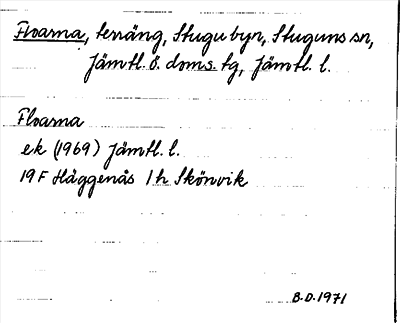 Floarna, terräng, Stugubyn, Stuguns sn,
Jämtl. Ö. doms. tg, Jämtl. l.
Floarna
ek (1969) Jämtl. l.
19F Häggenås 1 h Skönvik
B.D. 1971